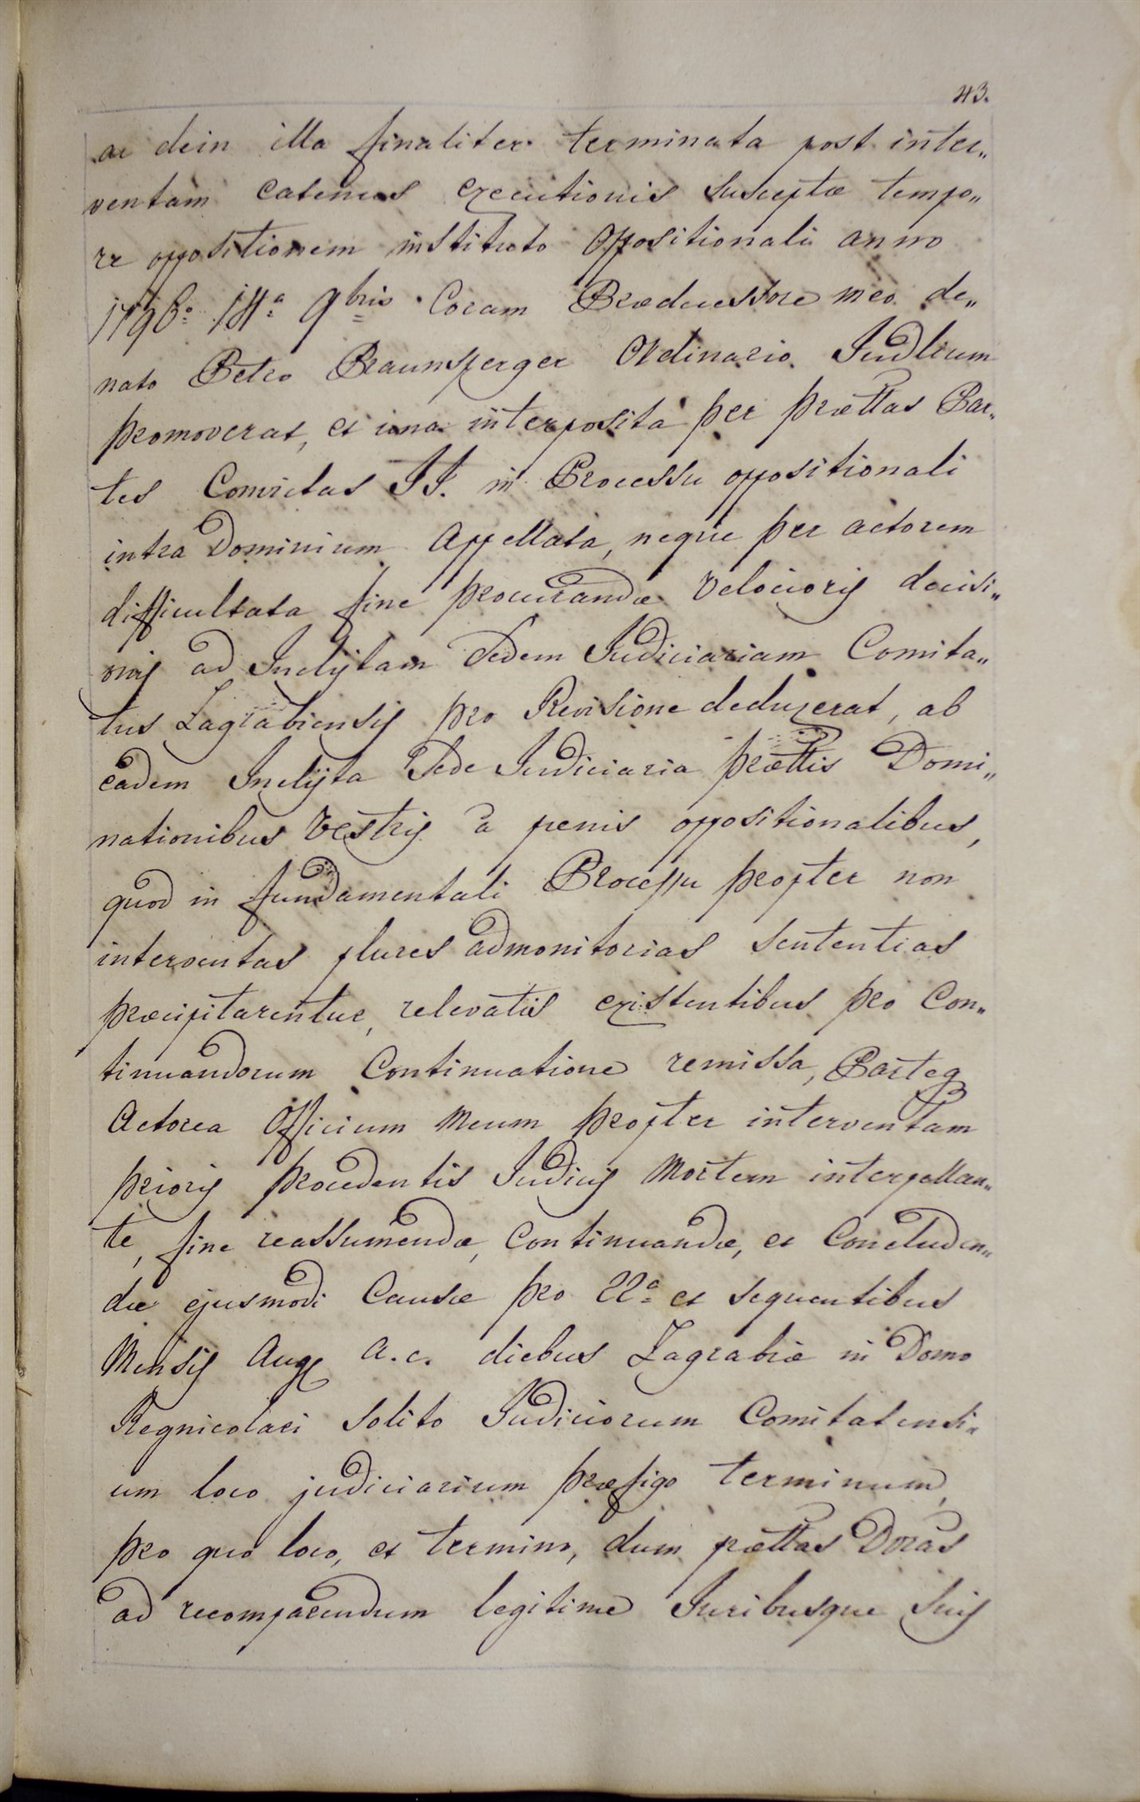 43.
ac dein illa finaliter terminata post inter„
ventam eatenus executionis susceptæ tempo„
re oppositionem instituto Oppositionali anno
1796º 14ª 9bris Coram Prædecessore meo de„
nato Petro Praunsperger Ordinario Judlium
promoverat, et una interposita per prættas Par„
tes Convictas IJ. in Processu oppositionali
intra Dominium Appellata, neque per actorem
difficultata fine procurandæ Velocioris decisi„
onis ad Inclytam Sedem Judiciariam Comita„
tus Zagrabiensis pro Revisione deduxerat, ab
eadem Inclyta Sede Judiciaria prættis Domi„
nationibus Vestris a penis oppositionalibus,
quod in fundamentali Processu propter non
interventas plures admonitorias sententias
præcipitarentur, relevatis existentibus pro Con„
tinuandorum Continuatione remissa, Parteq
Actorea Officium Meum propter interventam
prioris procedentis Judicis Mortem interpellan„
te, fine reassumendæ, Continuandæ, et Concluden„
dæ ejusmodi Causæ pro 22ª et sequentibus
Mensis Augi a. c. diebus Zagrabiæ in Domo
Regnicolari solito Judiciorum Comitatensi„
um loco judiciarium præfigo terminum,
pro quo loco, et termino, dum prættas Dnãs
ad recomparendum legitime Juribusque suis